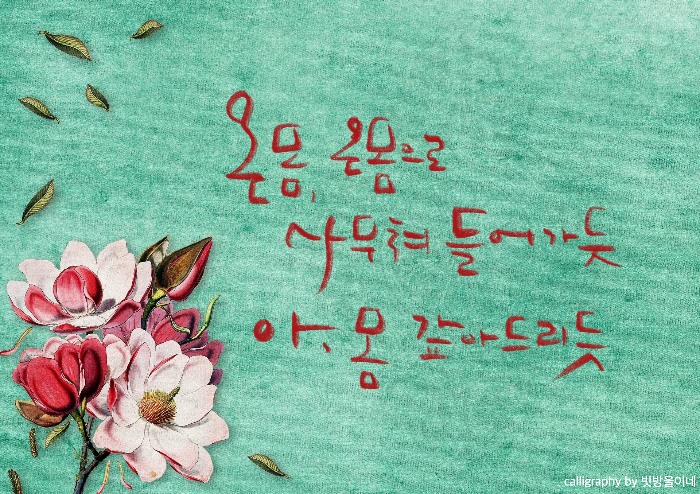 온몸, 온몸으로
사무쳐 들어가듯
아, 몸 갚아드리듯
calligraphy by 빗방울이네